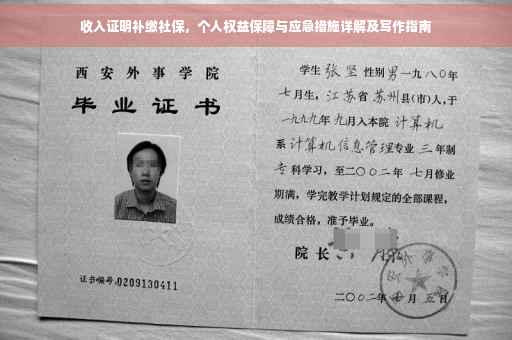 收入证明补缴社保，个人权益保障与应急措施详解及写作指南
西安外事学院
毕业证书
证书编号:0209130411
学生 张坚 性别 男 一九八〇年
七月生，江苏省 苏州县(市)人，于
一九九九年 九月入本院 计算机
系 计算机信息管理专业 三 年制
专 科学习，至二〇〇二年 七月修业
期满，学完教学计划规定的全部课程，
成绩合格，准予毕业。
院长
二〇〇二年 月 五日